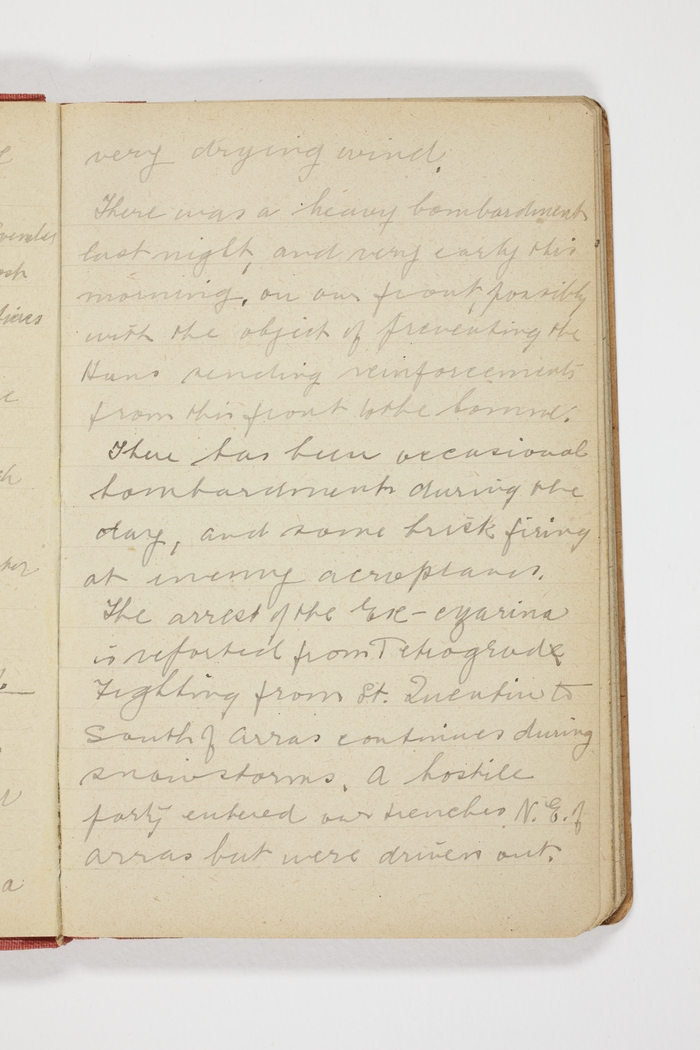 very drying wind.
There was a heavy bombardment
last night, and very early this
morning, on our front, possibly
with the object of preventing the
Huns sending reinforcements
from this front to the Somme.
There has been occasional
bombardments during the
day, and some brisk firing
at enemy aeroplanes.
The arrest of the Ex-czarina
is reported from Petrograde
Fighting from St. Quentin to
South of Arras continues during
snowstorms. A hostile
party entered our trenches N.E. of
Arras but were driven out.